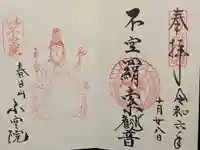 奉拝
令和六年
十月廿八日
不空羂索観音
春日山
不空院